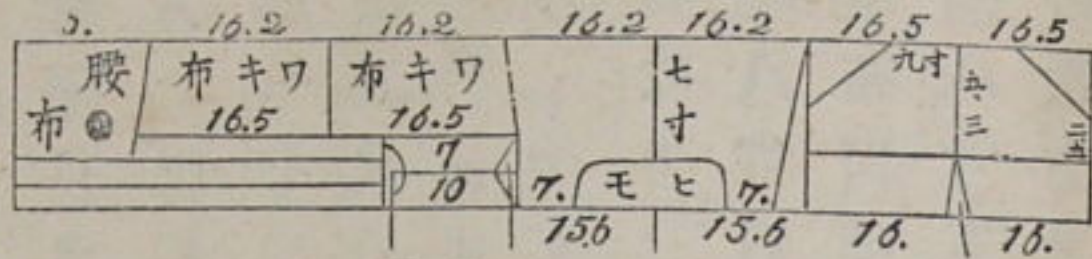 16.2 16.2 16.2 16.2 16.5 16.5
腰布
布キワ 16.5
布キワ 16.5
七寸
九寸
五、三
7
10
7. モヒ 7.
15.6 15.6 16. 16.